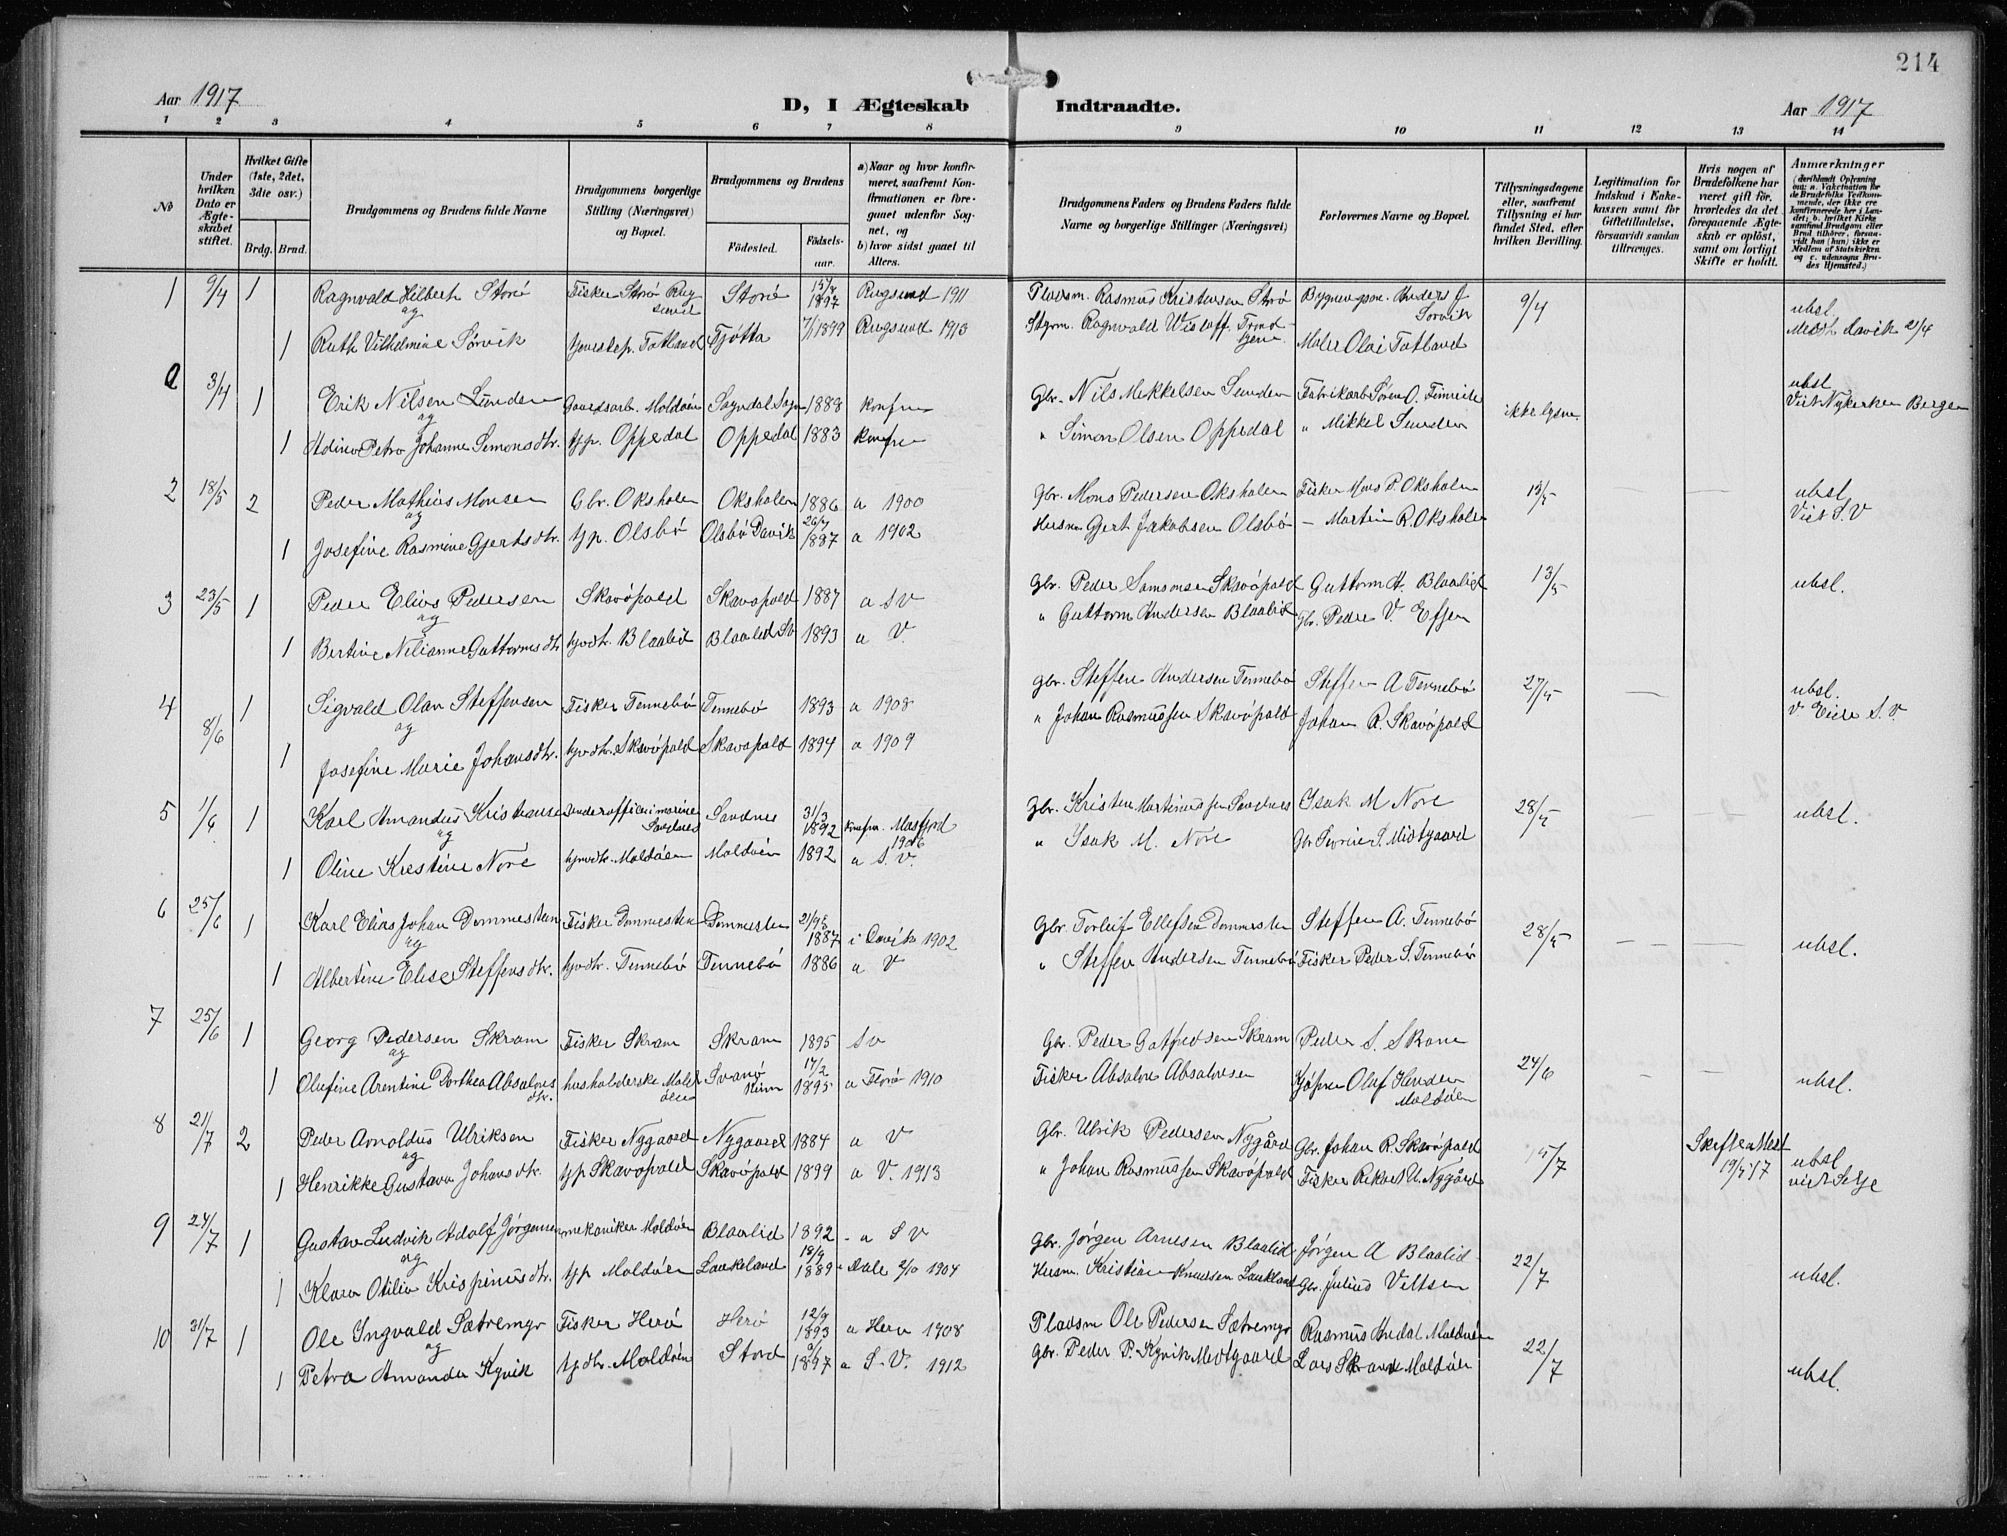 214
Aar 1917
D, I Ægteskab Indtraadte.
Aar 1917
1 2 3 4 5 6 7 8 9 10 11 12 13 14
No
Under hvilken Dato er Ægteskabet stiftet.
Hvilket Gifte (1ste, 2det, 3die osv.)
Brdg. Brud.
Brudgommens og Brudens fulde Navne
Brudgommens borgerlige Stilling (Næringsvei) og Bopæl.
Brudgommens og Brudens
Fødested.
Fødselsaar.
a) Naar og hvor konfirmeret, saafremt Konfirmationen er foregaaet udenfor Sognet, og
b) hvor sidst gaaet til Alters.
Brudgommens Faders og Brudens Faders fulde Navne og borgerlige Stillinger (Næringsvei)
Forlovernes Navne og Bopæl.
Tillysningsdagene eller, saafremt Tillysning ei har fundet Sted, efter hvilken Bevilling.
Legitimation for Indskud i Enkekassen samt for Giftetilladelse, forsaavidt saadan tiltrænges.
Hvis nogen af Brudefolkene har været gift før, hvorledes da det foregaaende Ægteskab er opløst, samt om lovligt Skifte er holdt.
Anmærkninger
(deriblandt Oplysning om: a. Vakcination for de Brudefolks Vedkommende, der ikke ere konfirmerede her i Landet; b. hvilket Kirkesamfund Brudgom eller Brud tilhører, forsaavidt han (hun) ikke er Medlem af Statskirken og c. udensogns Brudes Hjemsted.)
1 9/4 1 Ragnvald Hilbert Storø Fisker Storø Rugsund Storø 1897 Rugsund 1911 Pladsm. Rasmus Kristensen Storø 9/4 ubsl.
og
1 Ruth Vilhelmine Sørvik Totland Tjøtta 7/1 1899 Rugsund 1913 Styrm. Ragnvald Maler Olai Totland
3/4 1 Erik Nilsen Sunden Gaardsarb. Moldøen Sogndal Sogn 1888 Konfn Gbr. Nils Mikkelsen Sunden ikke lysn. ubsl Viet Nykirken Bergen
og
1 Adina Petra Johanne Simonsdtr. Oppedal Oppedal 1883 Konfn " Simon Olsen Oppedal " Mikkel Sunden
2 18/5 2 Peder Mathias Monsen Gbr. Oksholen Oksholen 1886 a 1900 Gbr. Mons Pedersen Oksholen Fisker Mons P. Oksholen 13/5 — — ubsl
og Viet S.V
1 Josefine Rasmine Gjertsdtr. Olsbø Olsbø Davik 1887 a 1902 Husm Gjert Jakobsen Olsbø – Martin R. Oksholen
3 23/5 1 Peder Elias Pedersen Skavøpold Skavøpold 1887 a S V Gbr. Peder Samsonsen Skavøpold Guttorm A. Blaalid 13/5 ubsl.
og
1 Bertine Nilianne Guttormsdtr Blaalid Blaalid SV 1893 a V. " Guttorm Andersen Blaalid Gbr. Peder V.
4 8/6 1 Sigvald Olan Steffensen Fisker Tennebø Tennebø 1893 a 1908 Gbr. Steffen Andersen Tennebø Steffen A Tennebø 27/5 — ubsl.
og
1 Josefine Marie Johansdtr. Skavøpold Skavøpold 1894 a 1909 " Johan Rasmussen Skavøpold Johan R. Skavøpold
5 1/6 1 Karl Amandus Kristensen Underofficer i marine Sandnes Sandnes 31/3 1892 Konfn. Masfjord 1906 Gbr. Kristen Martinussen Sandnes Isak M Nore 28/5 — — ubsl.
og
1 Oline Kristine Nore Moldøen Moldøen 1892 a S.V. " Isak M. Nore Midtgaard
6 25/6 1 Karl Elias Johan Dommesten Fisker Dommesten Dommesten 1887 i Davik 1902 Gbr. Torleif Ellefsen Dommesten Steffen A. Tennebø 28/5 — — ubsl.
og
1 Albertine Elise Steffensdtr. Tennebø Tennebø 1886 a V " Steffen Andersen Tennebø Fisker Peder S. Tennebø
7 25/6 1 Georg Pedersen Skram Fisker Skram Skram 1895 S V Gbr. Peder Gotfredsen Skram Peder S. Skram
og
1 Olufine Arentine Dorthea Absalonsdtr. husholderske Moldøen Svanø Kinn 17/2 1895 a Florø 1910 Fisker Absalon Absalonsen Olaf Henden Moldøen 24/6 — — ubsl.
8 21/7 2 Peder Arnoldus Ulriksen Fisker Nygaard Nygaard 1884 a V Gbr. Ulrik Pedersen Nygård Gbr. Johan R. Skavøpold 15/7 ubsl
og viet Selje
1 Henrikke Gustava Johansdtr. Skavøpold Skavøpold 1899 a V. 1913 " Johan Rasmussen Skavøpold Fisker Rikart U. Nygård
9 24/7 1 Gustav Ludvik Adolf Jørgensen mekaniker Moldøen Blaalid 1892 – a S V Gbr. Jørgen Arnesen Blaalid Jørgen A Blaalid 22/7 ubsl.
og
1 Klara Otilia Krispinusdtr. Moldøen Laukeland 18/9 1889 Dale 2/10 1904 Husm. Kristian Knudsen Laukland Gbr. Julius
10 31/7 1 Ole Ingvald Sætremyr Fisker Herø Herø 12/9 1893 a Herø 1908 Pladsm Ole Pedersen Sætremyr Rasmus Moldøen 22/7 ubsl.
og
1 Petra Amanda Kyvik Moldøen Stord 1897 a S.V. 1912 Gbr. Peder P. Kyvik Midtgaard Lars Moldøen